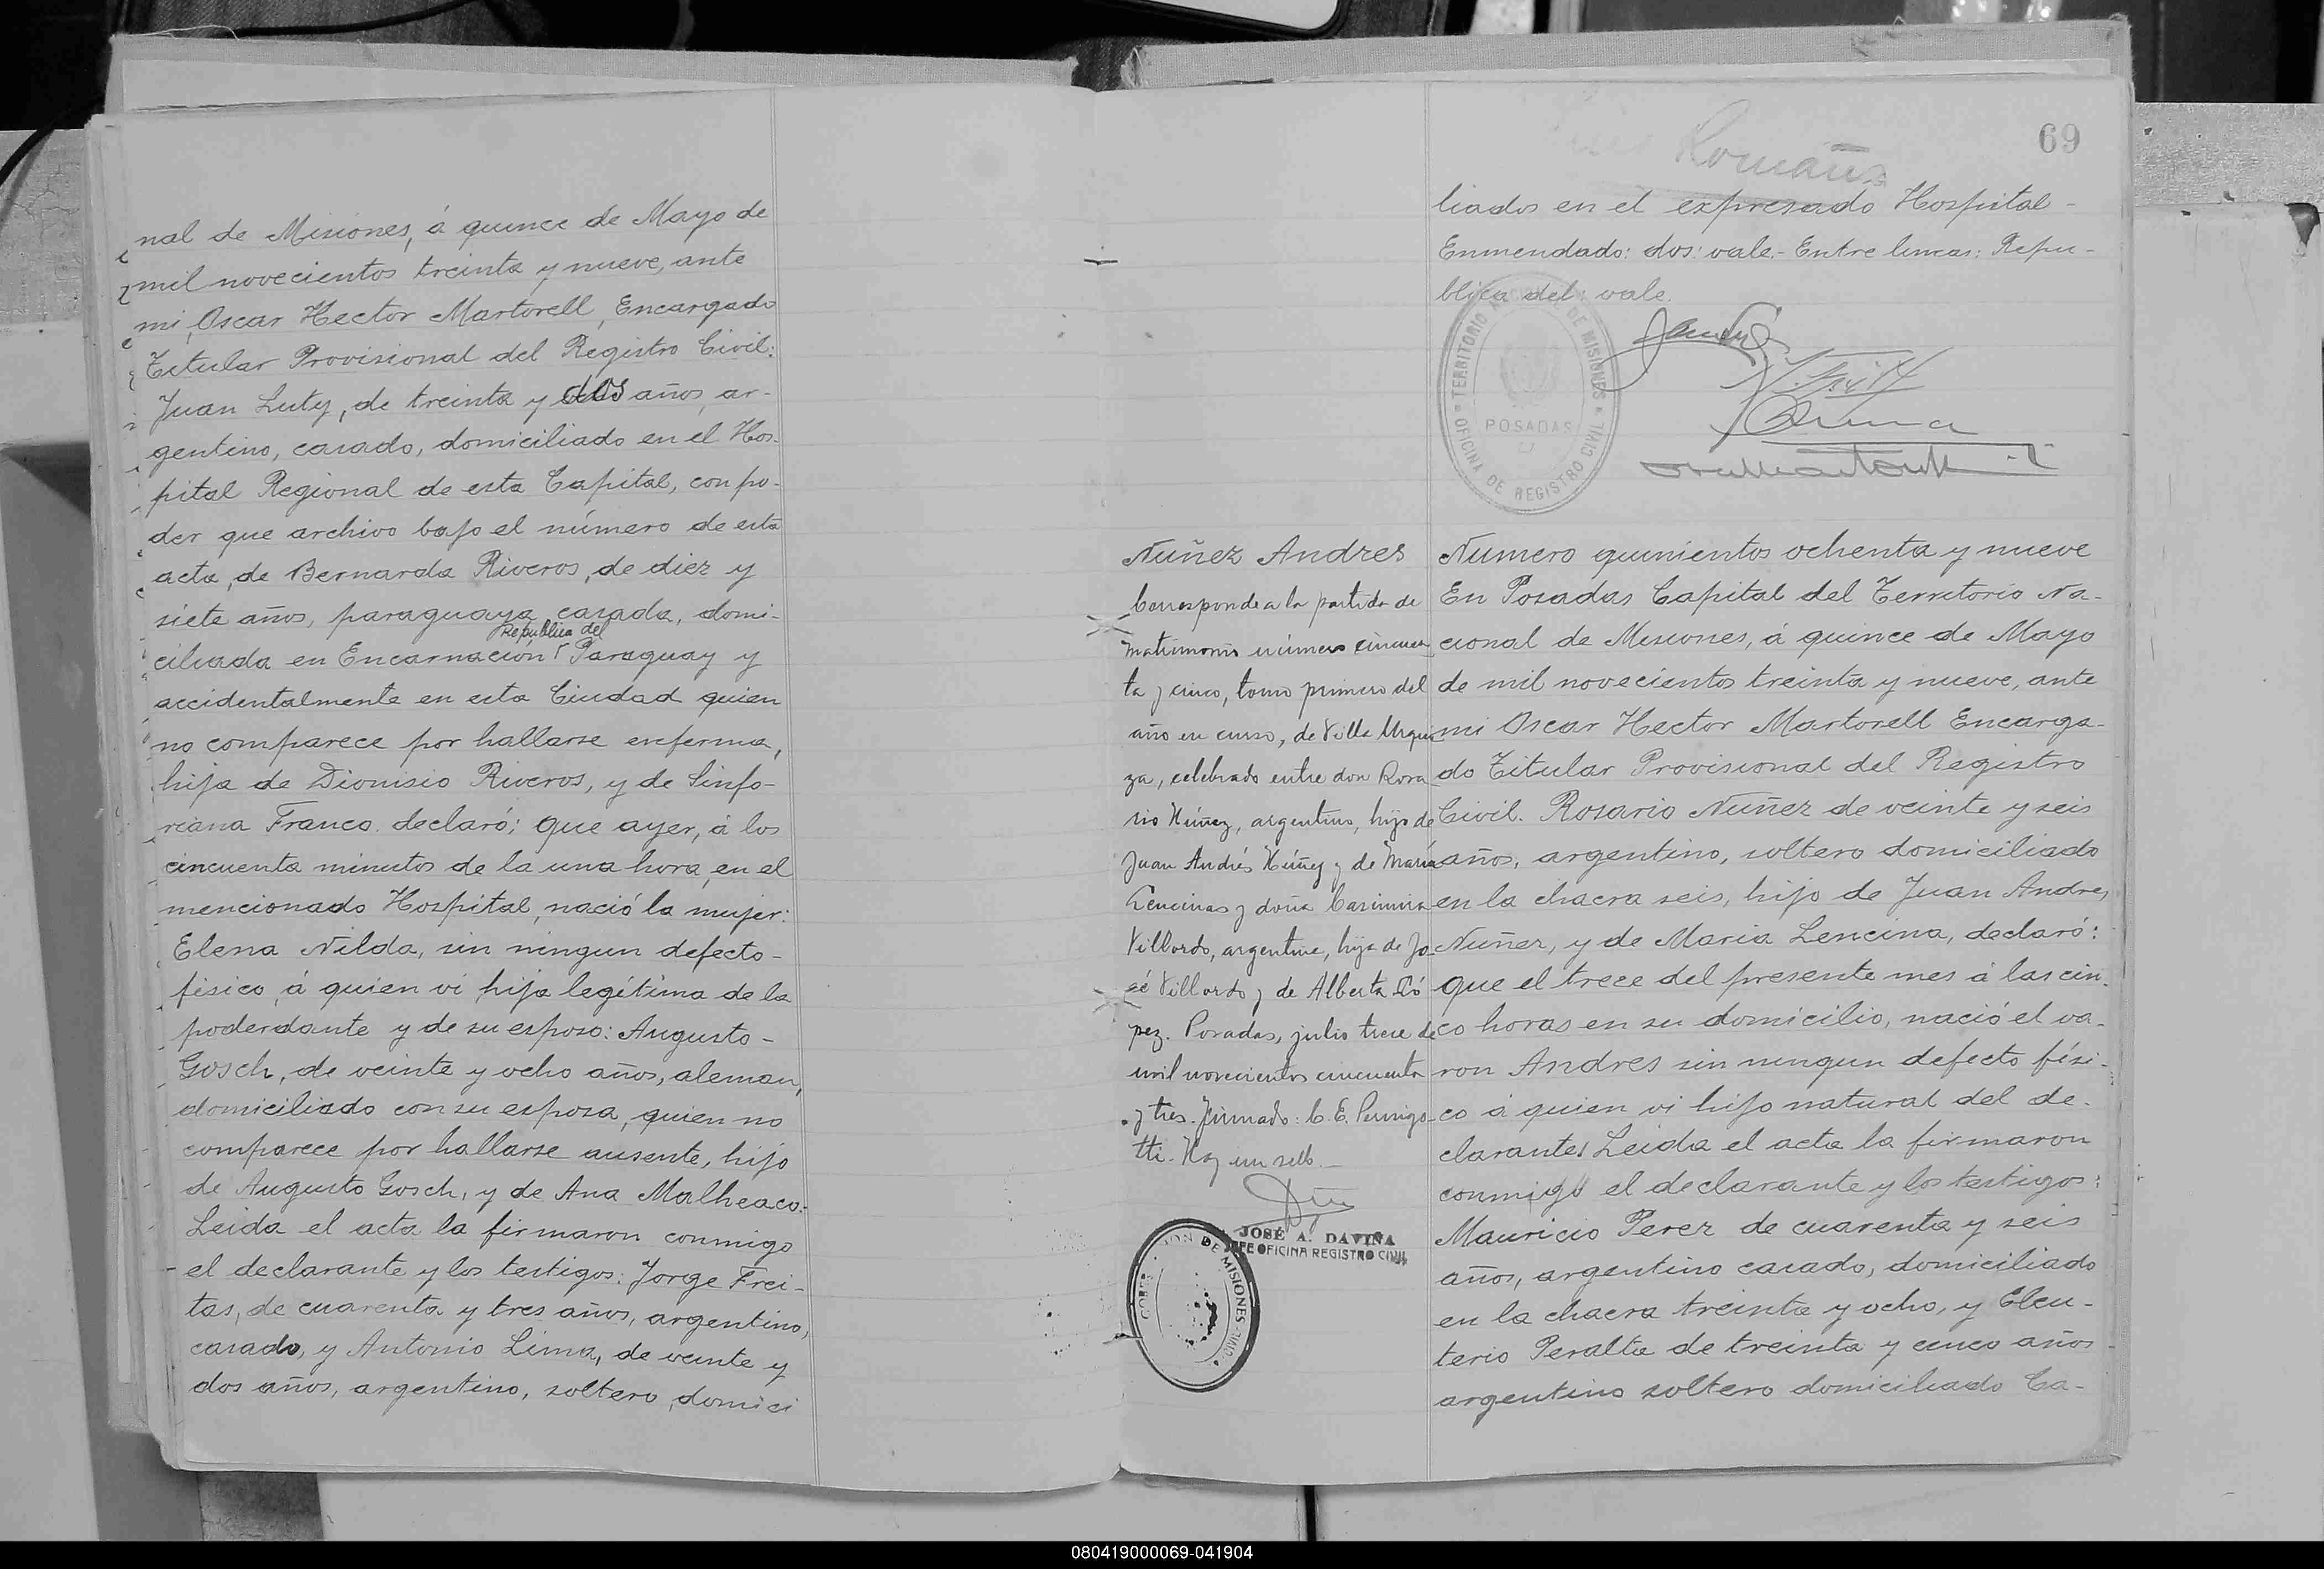 nal de Misiones, á quince de Mayo de
mil novecientos treinta y nueve, ante
mi, Oscar Hector Martorell, Encargado
Titular Provisional del Registro Civil:
Juan Luty, de treinta y dos años, ar-
gentino, casado, domiciliado en el Hos-
pital Regional de esta Capital, con po-
der que archivo bajo el número de esta
acta, de Bernarda Riveros, de diez y
siete años, paraguaya, casada, domi-
República del
ciliada en Encarnación Paraguay y
accidentalmente en esta Ciudad quien
no comparece por hallarse enferma,
hija de Dionisio Riveros, y de Sinfo-
riana Franco. declaró; que ayer, á los
cincuenta minutos de la una hora, en el
mencionado Hospital, nació la mujer:
Elena Nilda, sin ningun defecto-
fisico, á quien vi hija legítima de la
poderdante y de su esposo: Augusto-
Gosch, de veinte y ocho años, aleman,
domiciliado con su esposa, quien no
comparece por hallarse ausente, hijo
de Augusto Gosch, y de Ana Malheaco.
Leida el acta la firmaron conmigo
el declarante y los testigos: Jorge Frei-
tas, de cuarenta y tres años, argentino,
casado, y Antonio Lima, de veinte y
dos años, argentino, soltero, domici
69
Romaña
liados en el expresado Hospital-
Enmendado: dos: vale.- Entre lineas: Repu-
blica del: vale.
TERRITORIO NACIONAL DE MISIONES
POSADAS
OFICINA DE REGISTRO CIVIL
Nuñez Andres
Corresponde a la partida de
matrimonio número cincuen
ta y cinco, tomo primero del
año en curso, de Villa Urqui
za, celebrado entre don Rosa
rio Núñez, argentino, hijo de
Juan Andrés Núñez y de María
Lencinas y doña Casimira
Villordo, argentina, hija de Jo-
sé Villordo y de Alberta Ló
pez. Posadas, julio trece de
mil novecientos cincuenta
y tres. Firmado: C. E. Pernigo-
tti. Hay un sello.-
JOSÉ A. DAVIÑA
JEFE OFICINA REGISTRO CIVIL
Numero quinientos ochenta y nueve
En Posadas Capital del Territorio Na-
cional de Misiones, á quince de Mayo
de mil novecientos treinta y nueve, ante
mi Oscar Hector Martorell Encarga-
do Titular Provisional del Registro
Civil. Rosario Nuñez de veinte y seis
años, argentino, soltero domiciliado
en la chacra seis, hijo de Juan Andres,
Nuñez, y de Maria Lencina, declaró:
que el trece del presente mes á las cin-
co horas en su domicilio, nació el va-
ron Andres sin ningun defecto físi-
co á quien vi hijo natural del de-
clarante. Leida el acta la firmaron
conmigo el declarante y los testigos:
Mauricio Perez de cuarenta y seis
años, argentino casado, domiciliado
en la chacra treinta y ocho, y Eleu-
terio Peralta de treinta y cinco años
argentino soltero domiciliado Ca-
080419000069-041904